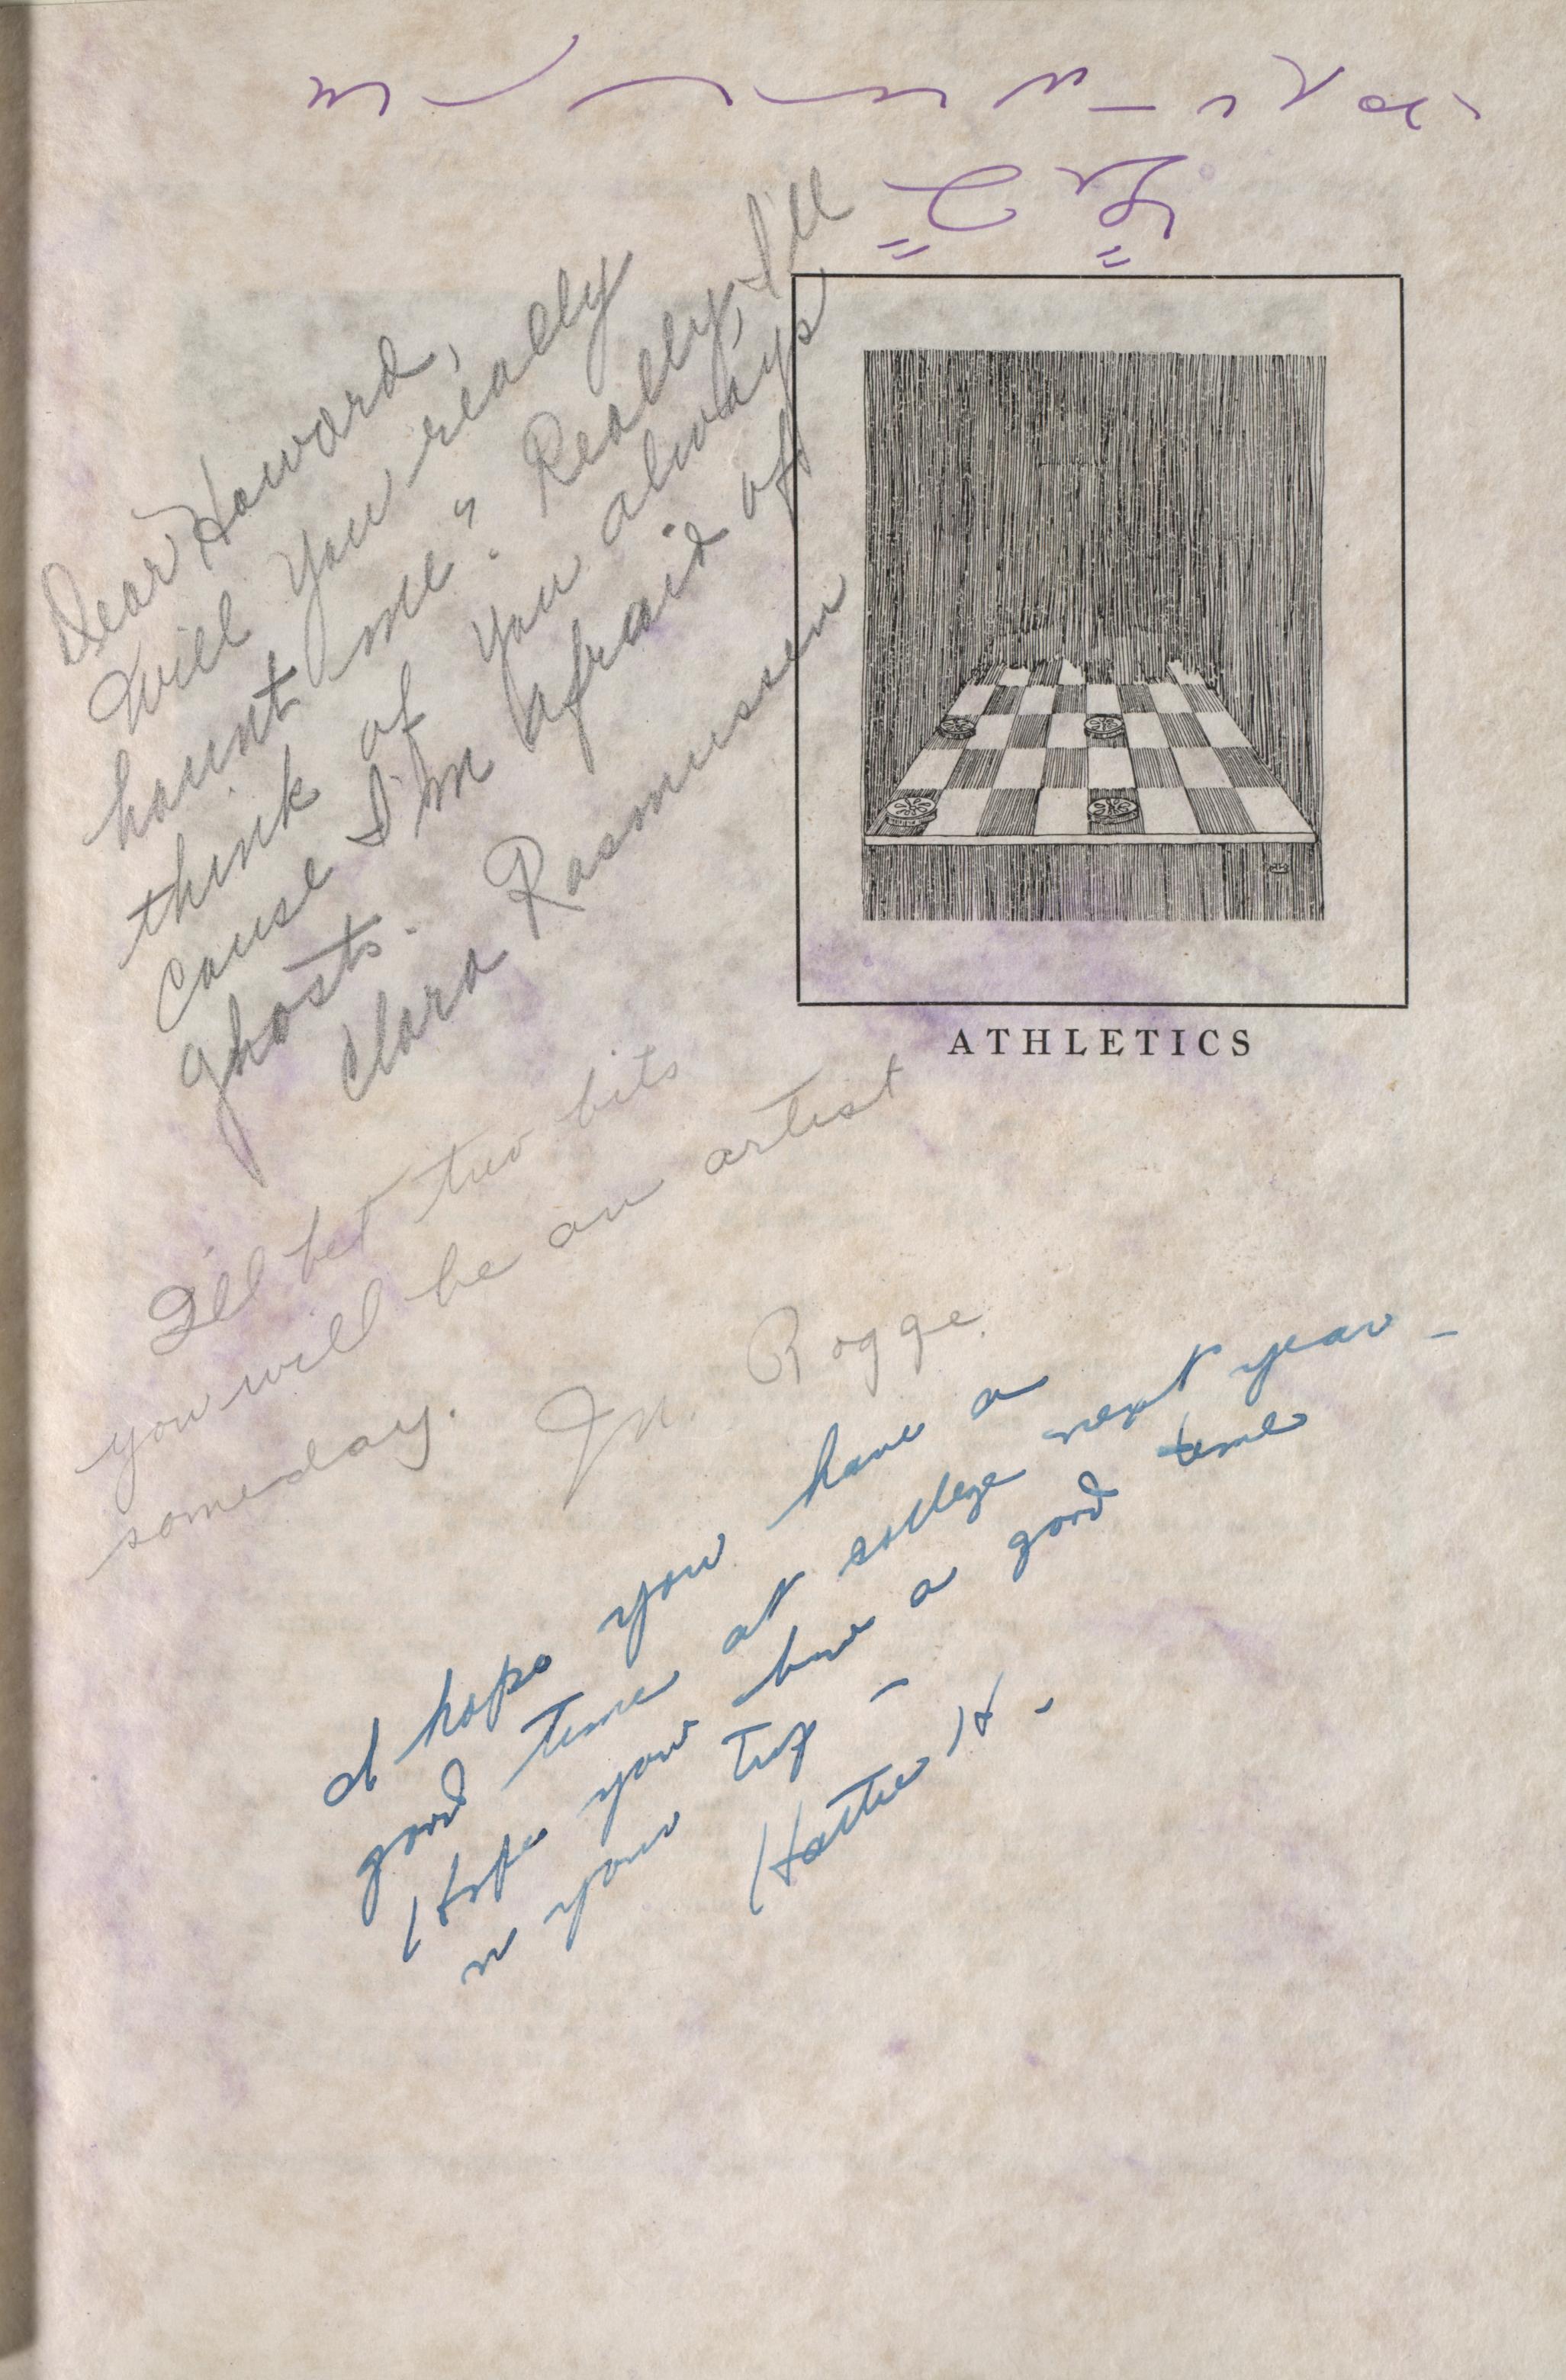 Dear Howard,
Will you really
haunt me? Really, I'll
think of you always
cause I'm afraid of
ghosts.
Clara Rasmussen
ATHLETICS
I'll bet two bits
you will be an artist
someday.
Jn. Rogge
I hope you have a
good time at college next year –
Hope you have a good time
n your trip –
Hattie H.